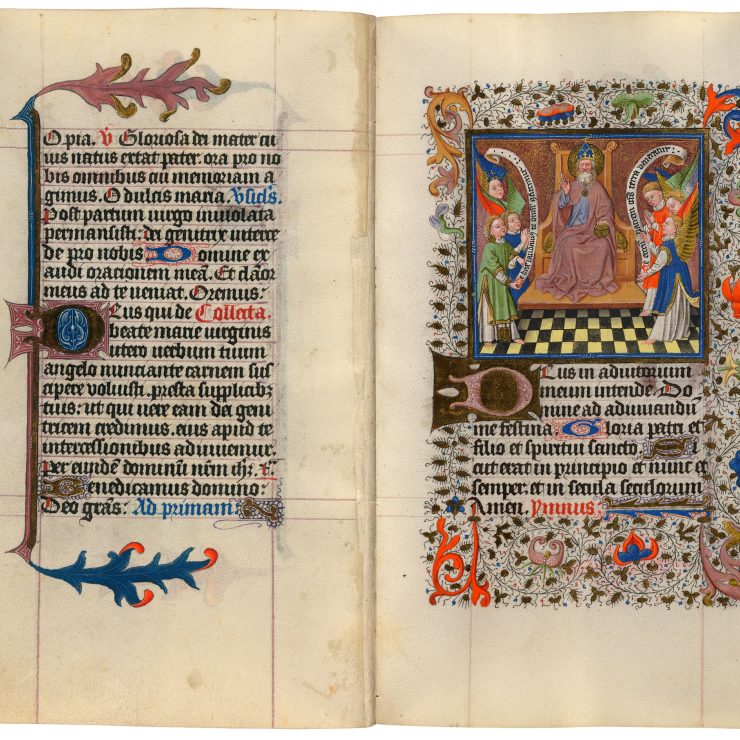 O pia. V Gloriosa dei mater cu
ius natus extat pater. ora pro no
bis omnibus cui memoriam a
gimus. O dulcis maria.
Post partum virgo inviolata
permansisti: dei genitrix interce
de pro nobis Domine ex
audi orationem meā. Et clāor
meus ad te veniat. Oremus:
Deus qui de Collecta.
beate marie virginis
utero verbum tuum
angelo nunciante carnem sus
cipere voluisti. presta supplicib;
tuis: ut qui vere eam dei geni
tricem credimus. eius apud te
intercessionibus adiuvemur.
Per eundē dominū
Benedicamus domino:
Deo gr̄as: Ad primam
terra veneratur
Deus in adiutorium
meum intende Do
mine ad adiuvandū
me festina Gloria patri et
filio et spiritui sancto. Si
cut erat in principio et nunc et
semper. et in secula seculorum
Amen. Ymnus: